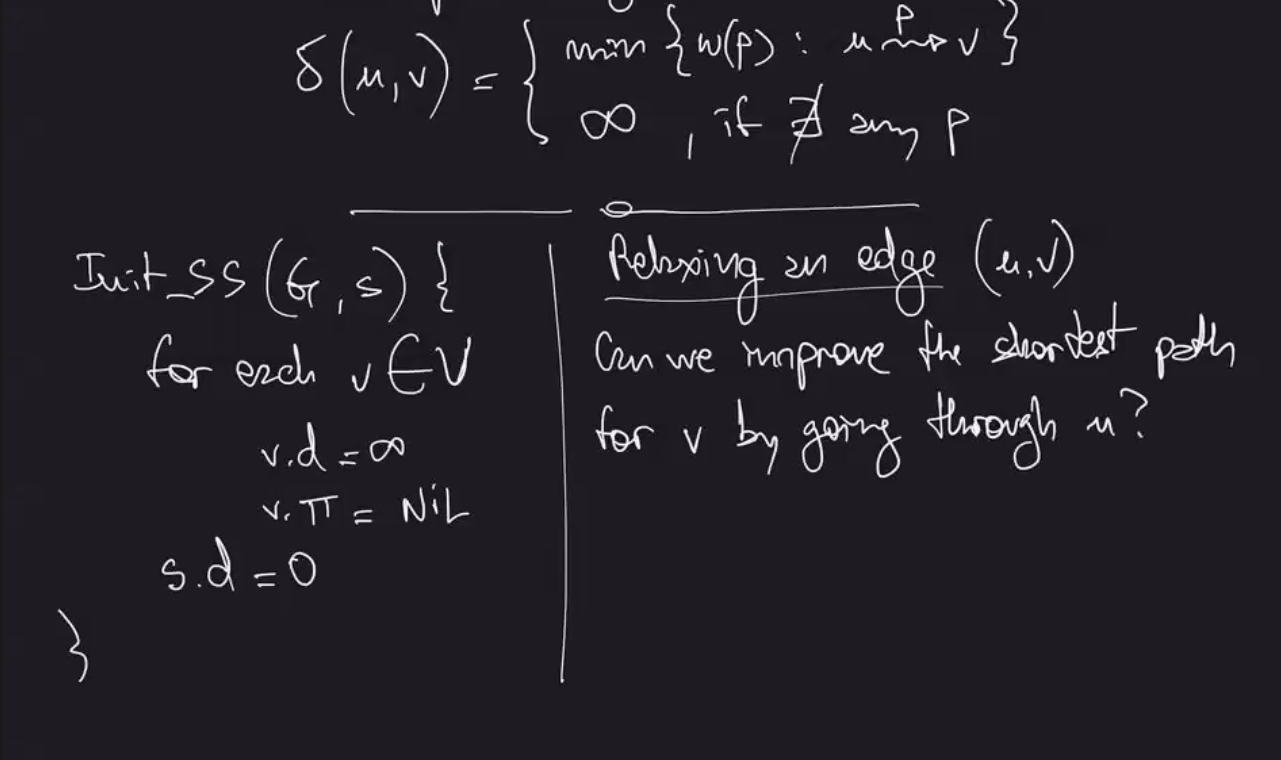 δ(u,v) = { min {w(p) : u ⇝ᵖ v}
∞ , if ∄ any p
Init_SS (G,s) {
for each v ∈ V
v.d = ∞
v.π = NiL
s.d = 0
}
Relaxing an edge (u,v)
Can we improve the shortest path
for v by going through u?